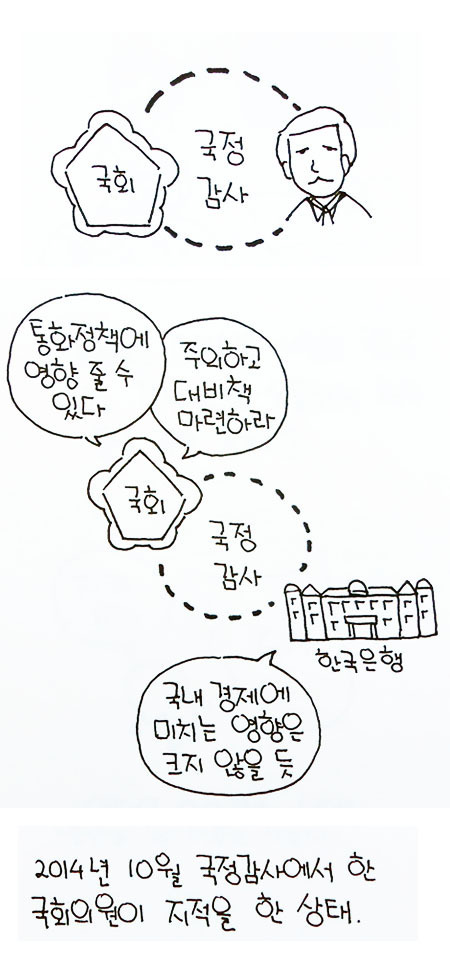 국회
국정
감사
통화정책에
영향 줄 수
있다
주의하고
대비책
마련하라
국회
국정
감사
한국은행
국내 경제에
미치는 영향은
크지 않을 듯
2014년 10월 국정감사에서 한
국회의원이 지적을 한 상태.